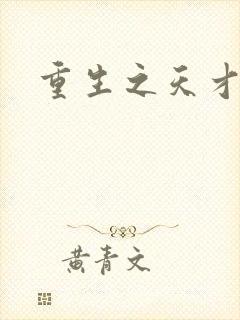 重生之天才
黄青文